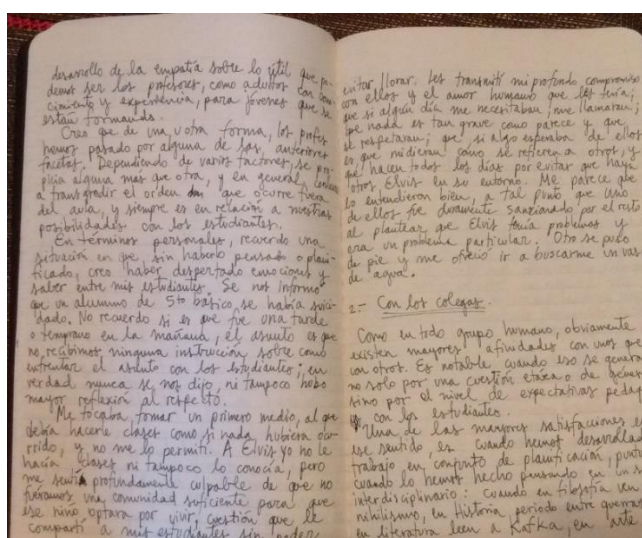 desarrollo de la empatía sobre lo útil que po-
demos ser los profesores, como adultos con cono-
cimiento y experiencia, para jóvenes que se
están formando.
Creo que de una u otra forma, los profes
hemos pasado por alguna de las anteriores
facetas. Dependiendo de varios factores, se pro-
picia alguna más que otra, y en general, conlleva
a transgredir el orden que ocurre fuera
del aula, y siempre es en relación a nuestras
posibilidades con los estudiantes.
En términos personales, recuerdo una
situación en que sin haberlo pensado o plani-
ficado, creo haber despertado emociones y
saber entre mis estudiantes. Se nos informó
que un alumno de 5to básico se había suici-
dado. No recuerdo si es que fue una tarde
o temprano en la mañana, el asunto es que
no recibimos ninguna instrucción sobre como
enfrentar el asunto con los estudiantes; en
verdad nunca se nos dijo, ni tampoco hubo
mayor reflexión al respecto.
Me tocaba tomar un primero medio, al que
debía hacerle clases como si nada hubiera ocu-
rrido, y no me lo permití. A Elvis yo no le
hacía clases ni tampoco lo conocía, pero
me sentía profundamente culpable de que no
fuéramos una comunidad suficiente para que
ese niño optara por vivir, cuestión que le
compartí a mis estudiantes sin poder
evitar llorar. Les transmití mi profundo compromiso
con ellos y el amor humano que les tenía;
que si algún día me necesitaban, me llamaran;
que nada es tan grave como parece y que
se respetaran; que si algo esperaba de ellos
es que midieran como se refieren a otros, y
que hacen todos los días por evitar que haya
otros Elvis en su entorno. Me parece que
lo entendieron bien, a tal punto que uno
de ellos fue duramente sancionado por el resto
al plantear que Elvis tenía problemas y
era un problema particular. Otro se puso
de pie y me ofreció ir a buscarme un vas
de agua.
2.- Con los colegas.
Como en todo grupo humano, obviamente
existen mayores afinidades con unos que
con otros. Es notable, cuando eso se genera
no solo por una cuestión etárea o de géner
sino por el nivel de expectativas pedag
con los estudiantes.
Una de las mayores satisfacciones e
ese sentido, es cuando hemos desarrollad
trabajo en conjunto de planificación, puntu
cuando lo hemos hecho pensando en un
interdisciplinario: cuando en filosofía ven
nihilismo, en Historia periodo entre guerras
en literatura leen a Kafka, en arte